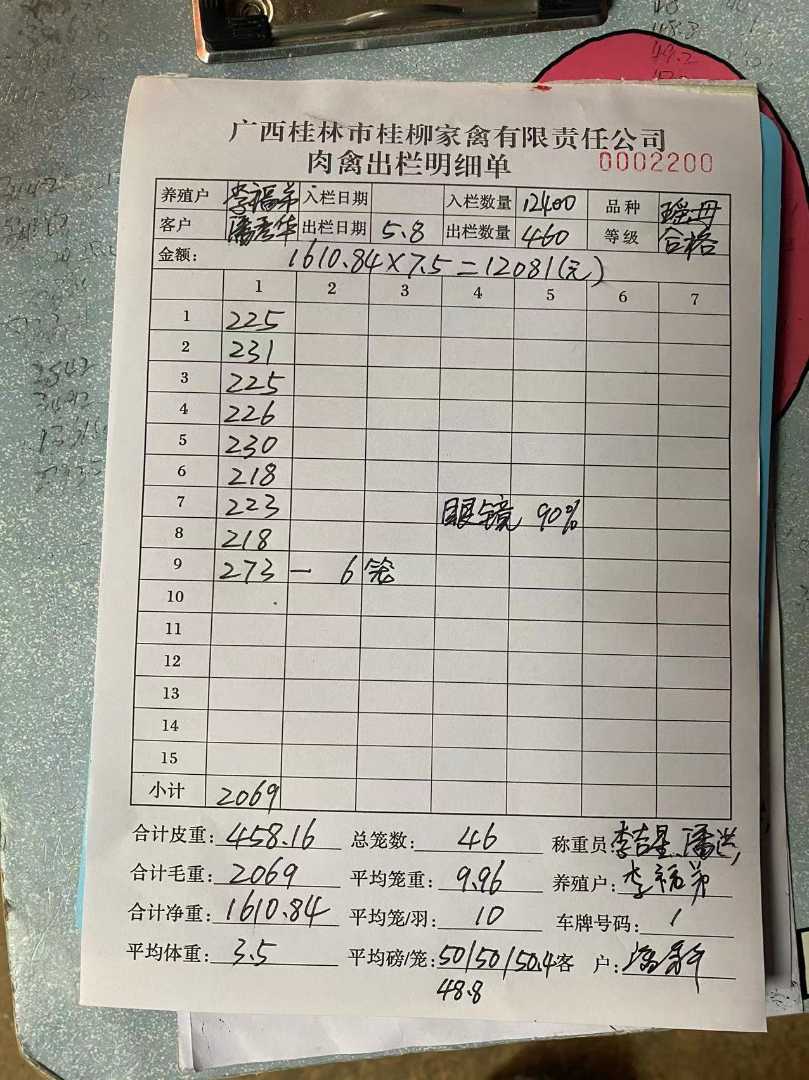 广西桂林市桂柳家禽有限责任公司
肉禽出栏明细单 0002200
养殖户 李福弟 入栏日期 入栏数量 12400 品种 瑶丹
客户 潘秀华 出栏日期 5.8 出栏数量 460 等级 合格
金额: 1610.84×7.5=12081(元)
1 2 3 4 5 6 7
1 225
2 231
3 225
4 226
5 230
6 218
7 223 眼镜 90%
8 218
9 273 — 6笼
10
11
12
13
14
15
小计 2069
合计皮重: 458.16 总笼数: 46 称重员: 李吉星、潘洪
合计毛重: 2069 平均笼重: 9.96 养殖户: 李福弟
合计净重: 1610.84 平均笼/羽: 10 车牌号码: /
平均体重: 3.5 平均磅/笼: 50/50/50.4 客 户:
48.8